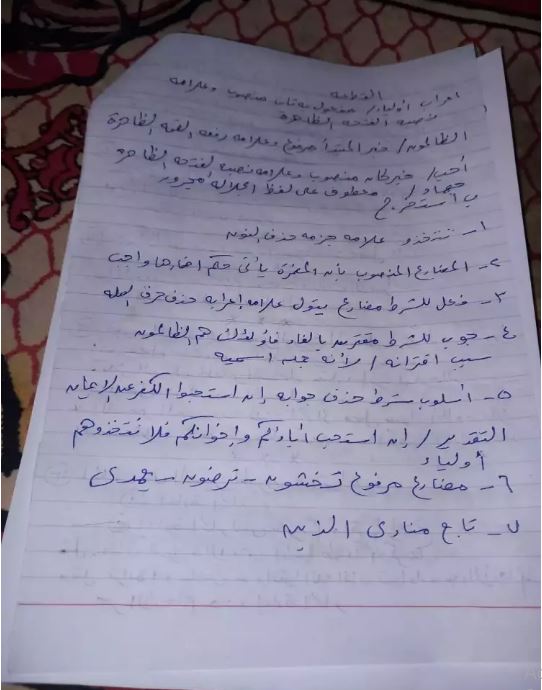 القطعه
اعراب أولياء/ مفعول به ثان منصوب وعلامه
نصبه الفتحه الظاهرة
الظالمون/ خبر المبتدأ مرفوع وعلامه رفعه الظاهرة
أحب/ خبر كان منصوب وعلامه نصبه الفتحه الظاهرة
جهاد/ معطوف على لفظ الجلاله مجرور
ب استخرج
١- تتخذو علامه جزمه حذف النون
٢- المضارع المنصوب بأن المضمرة يأتى حكم اضمارها واجب
٣- فعل للشرط مضارع يتول علامه إعرابه حذف حرف العله
٤- جوب للشرط مقترن بالفاء فأولئك هم الظالمون
سبب اقترانه / لأنه جمله اسميه
٥- أسلوب شرط حذف جوابه إن استحبوا الكفر على الايمان
التقدير/ إن استحب أباؤكم وإخوانكم فلا تتخذوهم
أولياء
٦- مضارع مرفوع تخشون - ترضون - يهدى
٧- تابع منادى الذين